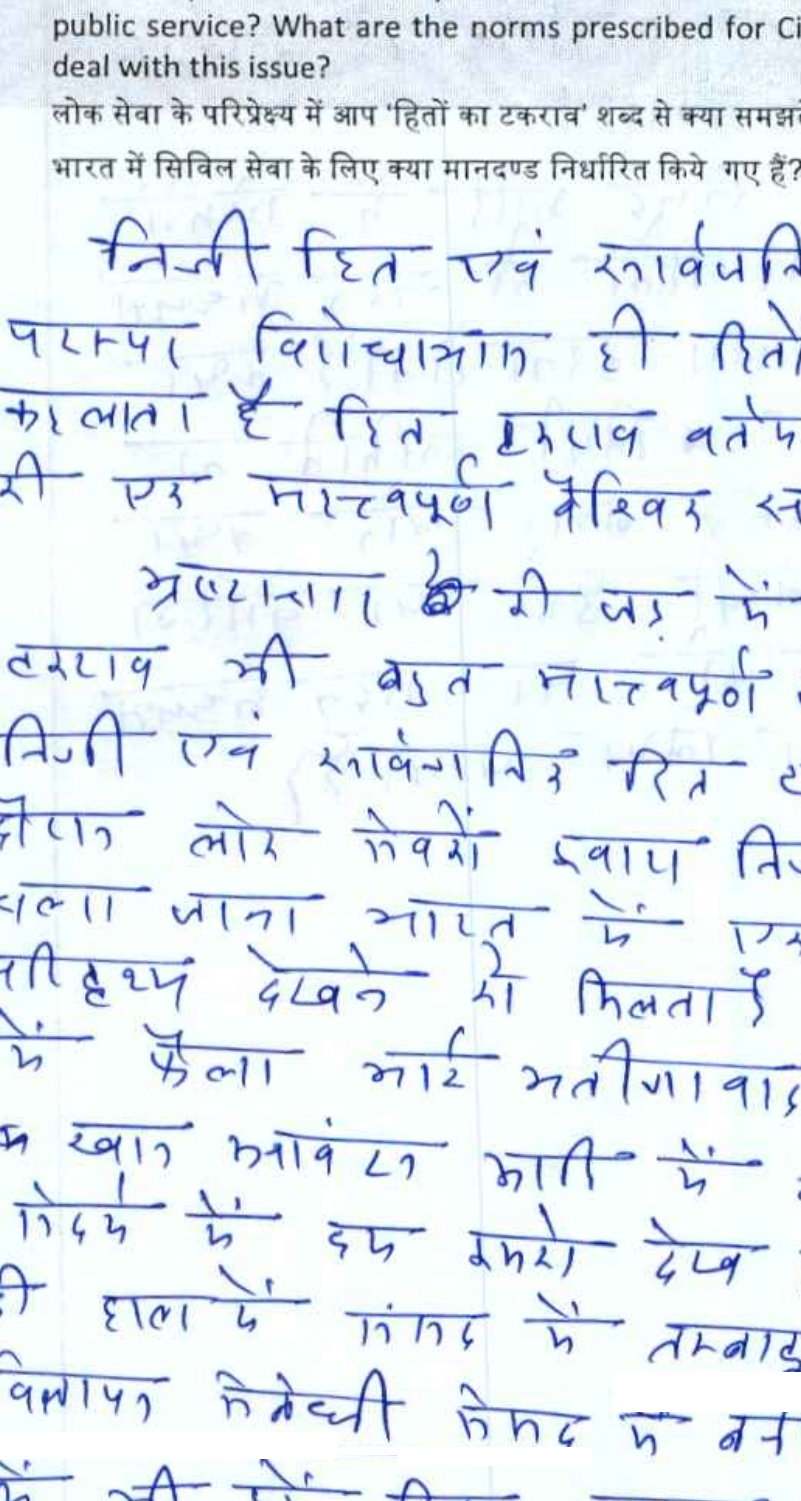 public service? What are the norms prescribed for Ci
deal with this issue?
लोक सेवा के परिप्रेक्ष्य में आप 'हितों का टकराव' शब्द से क्या समझते
भारत में सिविल सेवा के लिए क्या मानदण्ड निर्धारित किये गए हैं?
निजी हित एवं सार्वजनि
परस्पर विरोधाभास ही हितो
कहलाता है हित टकराव वर्तम
की एक महत्त्वपूर्ण वैश्विक स
भ्रष्टाचार की जड़ में
टकराव भी बहुत महत्त्वपूर्ण
निजी एवं सार्वजनिक हित ट
दौरान लोक सेवकों द्वारा नि
चला जाना भारत में एक
परिदृश्य देखने को मिलता है
में फैला भाई भतीजावाद
खान आवंटन आदि में
संदर्भ में हम इसको देख
ही हाल में संसद में तम्बाकू
विज्ञापन संबंधी
में भी